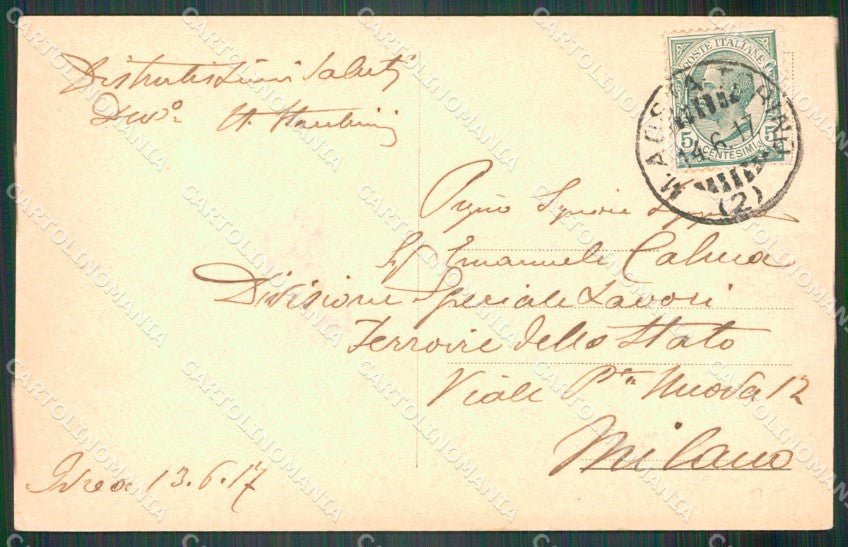 Distintissimi saluti
Dev.º
POSTE ITALIANE
5 CENTESIMI 5
M. AOSTA TORINO
14.6.17
(2)
Signore
Emanuele Calma
Divisione Speciale Lavori
Ferrovie dello Stato
Viale Pta Nuova 12
Milano
Ivrea 13.6.17
CARTOLINOMANIA